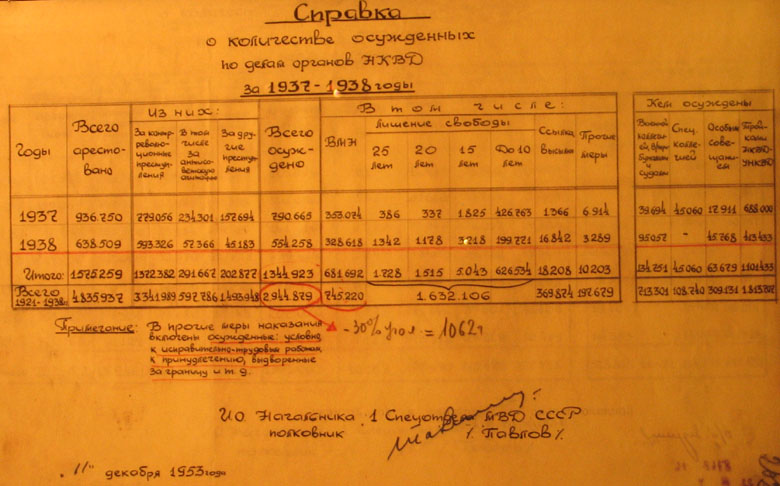 Справка
о количестве осужденных
по делам органов НКВД
за 1937-1938 годы
Из них: В том числе: Кем осуждены
Годы Всего арестовано За контрреволюционные преступления В том числе за антисоветскую агитацию За другие преступления Всего осуждено ВМН лишение свободы Ссылка высылка Прочие меры Спец. коллегией Особым совещанием Тройками НКВД-УНКВД
25 лет 20 лет 15 лет До 10 лет
1937 936.750 779.056 234.301 157.694 790.665 353.074 386 337 1.825 426.763 1366 6.914 39.694 45.060 17.911 688.000
1938 638.509 593.326 57.366 45.183 554.258 328.618 1342 1178 3.218 199.771 16.842 3.289 95.057 - 45.768 413.433
Итого: 1575.259 1372.382 291.667 202.877 1344.923 681.692 1.728 1.515 5.043 626.534 18.208 10.203 134.751 45.060 63.679 1101.433
Всего 1921-1938г. 4.835.937 3.341.989 597.786 1.493.948 2.944.879 745.220 1.632.106 369.874 197.679 213.301 108.740 309.131
Примечание: В прочие меры наказания
включены осужденные: условно
к исправительно-трудовым работам,
к принудлечению, выдворенные
за границу и т. д.
- 30% угол = 1062т
И О Начальника 1 Спецотдела МВД СССР
полковник /. Павлов /.
„11" декабря 1953 года